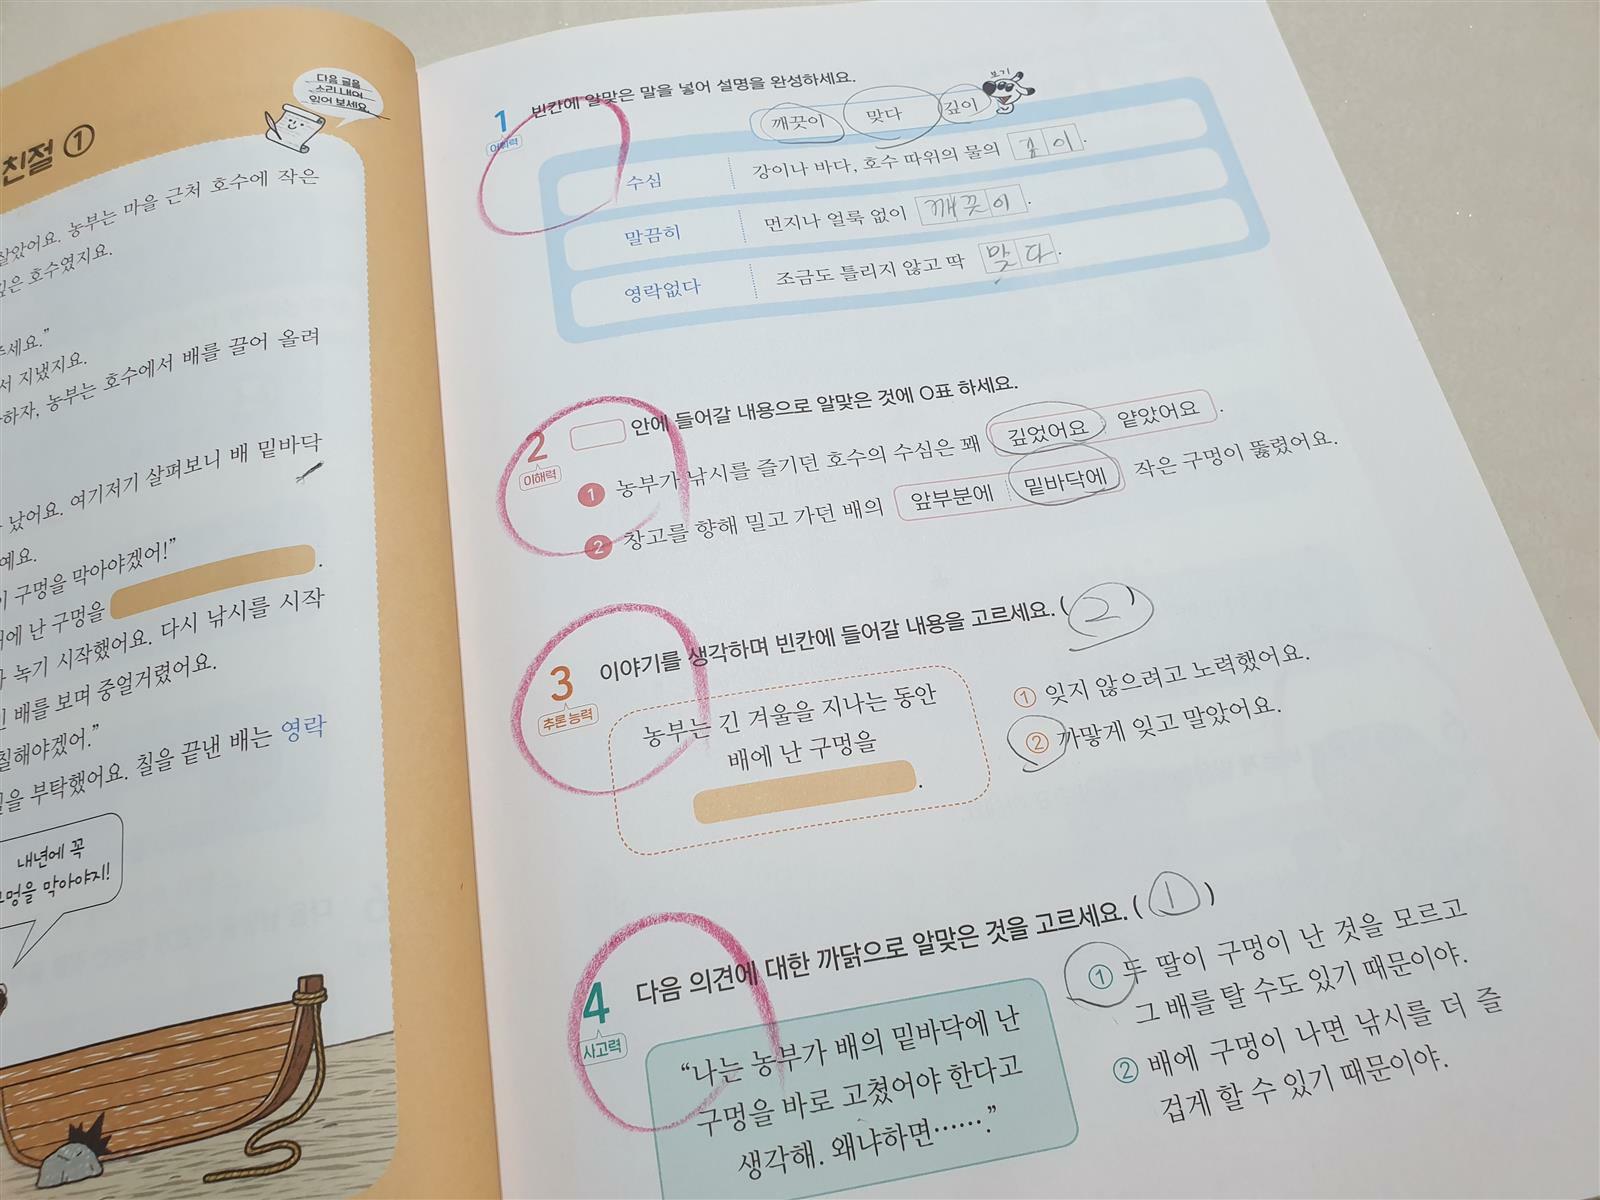 친절 ①
다음 글을
소리 내어
읽어 보세요.
살았어요. 농부는 마을 근처 호수에 작은
깊은 호수였지요.
주세요.”
서 지냈지요.
하자, 농부는 호수에서 배를 끌어 올려
났어요. 여기저기 살펴보니 배 밑바닥
예요.
이 구멍을 막아야겠어!”
배에 난 구멍을 .
녹기 시작했어요. 다시 낚시를 시작
배를 보며 중얼거렸어요.
칠해야겠어.”
을 부탁했어요. 칠을 끝낸 배는 영락
내년에 꼭
구멍을 막아야지!
1 빈칸에 알맞은 말을 넣어 설명을 완성하세요.
어휘력
보기
깨끗이 맞다 깊이
수심 강이나 바다, 호수 따위의 물의 깊이.
말끔히 먼지나 얼룩 없이 깨끗이.
영락없다 조금도 틀리지 않고 딱 맞다.
2 안에 들어갈 내용으로 알맞은 것에 O표 하세요.
이해력
1 농부가 낚시를 즐기던 호수의 수심은 꽤 깊었어요 얕았어요.
2 창고를 향해 밀고 가던 배의 앞부분에 밑바닥에 작은 구멍이 뚫렸어요.
3 이야기를 생각하며 빈칸에 들어갈 내용을 고르세요. ( 2 )
추론 능력
농부는 긴 겨울을 지나는 동안
배에 난 구멍을
.
① 잊지 않으려고 노력했어요.
② 까맣게 잊고 말았어요.
4 다음 의견에 대한 까닭으로 알맞은 것을 고르세요. ( 1 )
사고력
“나는 농부가 배의 밑바닥에 난
구멍을 바로 고쳤어야 한다고
생각해. 왜냐하면…….”
① 두 딸이 구멍이 난 것을 모르고
그 배를 탈 수도 있기 때문이야.
② 배에 구멍이 나면 낚시를 더 즐
겁게 할 수 있기 때문이야.